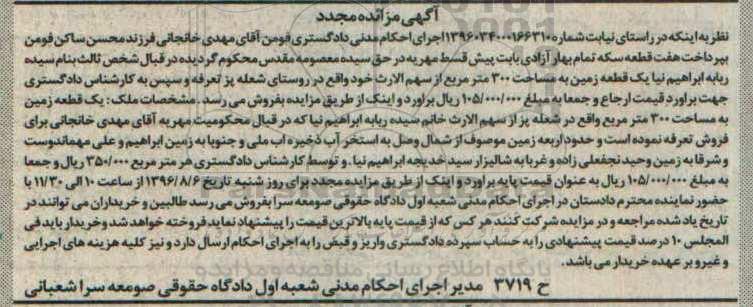 آگهی مزائده مجدد
نظر به اینکه در راستای نیابت شماره ۱۳۹۶۰۳۴۰۰۰۱۶۶۳۱۰ اجرای احکام مدنی دادگستری فومن آقای مهدی خانجانی فرزند محسن ساکن فومن
بپرداخت هفت قطعه سکه تمام بهار آزادی بابت پیش قسط مهریه در حق سیده معصومه مقدس محکوم گردیده در قبال شخص ثالث بنام سیده
ربابه ابراهیم نیا یک قطعه زمین به مساحت ۳۰۰ متر مربع از سهم الارث خود واقع در روستای شعله پز تعرفه و سپس به کارشناس دادگستری
جهت براورد قیمت ارجاع و جمعا به مبلغ ۱۰۵/۰۰۰/۰۰۰ ریال براورد و اینک از طریق مزایده بفروش می رسد . مشخصات ملک : یک قطعه زمین
به مساحت ۳۰۰ متر مربع واقع در شعله پز از سهم الارث خانم سیده ربابه ابراهیم نیا که در قبال محکومیت مهریه آقای مهدی خانجانی برای
فروش تعرفه نموده است و حدود اربعه زمین موصوف از شمال وصل به استخر آب ذخیره اب ملی و جنوبا به زمین ابراهیم و علی مهماندوست
و شرقا به زمین وحید نجفعلی زاده و غربا به شالیزار سید خدیجه ابراهیم نیا . و توسط کارشناس دادگستری هر متر مربع ۳۵۰/۰۰۰ ریال و جمعا
به مبلغ ۱۰۵/۰۰۰/۰۰۰ ریال به عنوان قیمت پایه براورد و اینک از طریق مزایده مجدد برای روز شنبه تاریخ ۱۳۹۶/۸/۶ از ساعت ۱۰ الی ۱۱/۳۰ با
حضور نماینده محترم دادستان در اجرای احکام مدنی شعبه اول دادگاه حقوقی صومعه سرا بفروش می رسد طالبین و خریداران می توانند در
تاریخ یاد شده مراجعه و در مزایده شرکت کنند هر کس که از قیمت پایه بالاترین قیمت را پیشنهاد نماید فروخته خواهد شد وخریدار باید فی
المجلس ۱۰ درصد قیمت پیشنهادی را به حساب سپرده دادگستری واریز و قبض را به اجرای احکام ارسال دارد و نیز کلیه هزینه های اجرایی
و غیرو بر عهده خریدار می باشد.
ح ۳۷۱۹ مدیر اجرای احکام مدنی شعبه اول دادگاه حقوقی صومعه سرا شعبانی